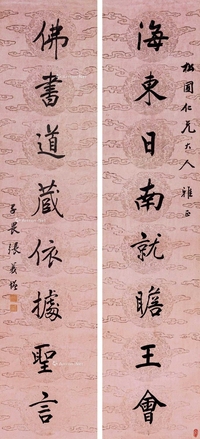 松圃仁兄大人 雅正
海東日南就瞻王會
佛書道藏依據聖言
張